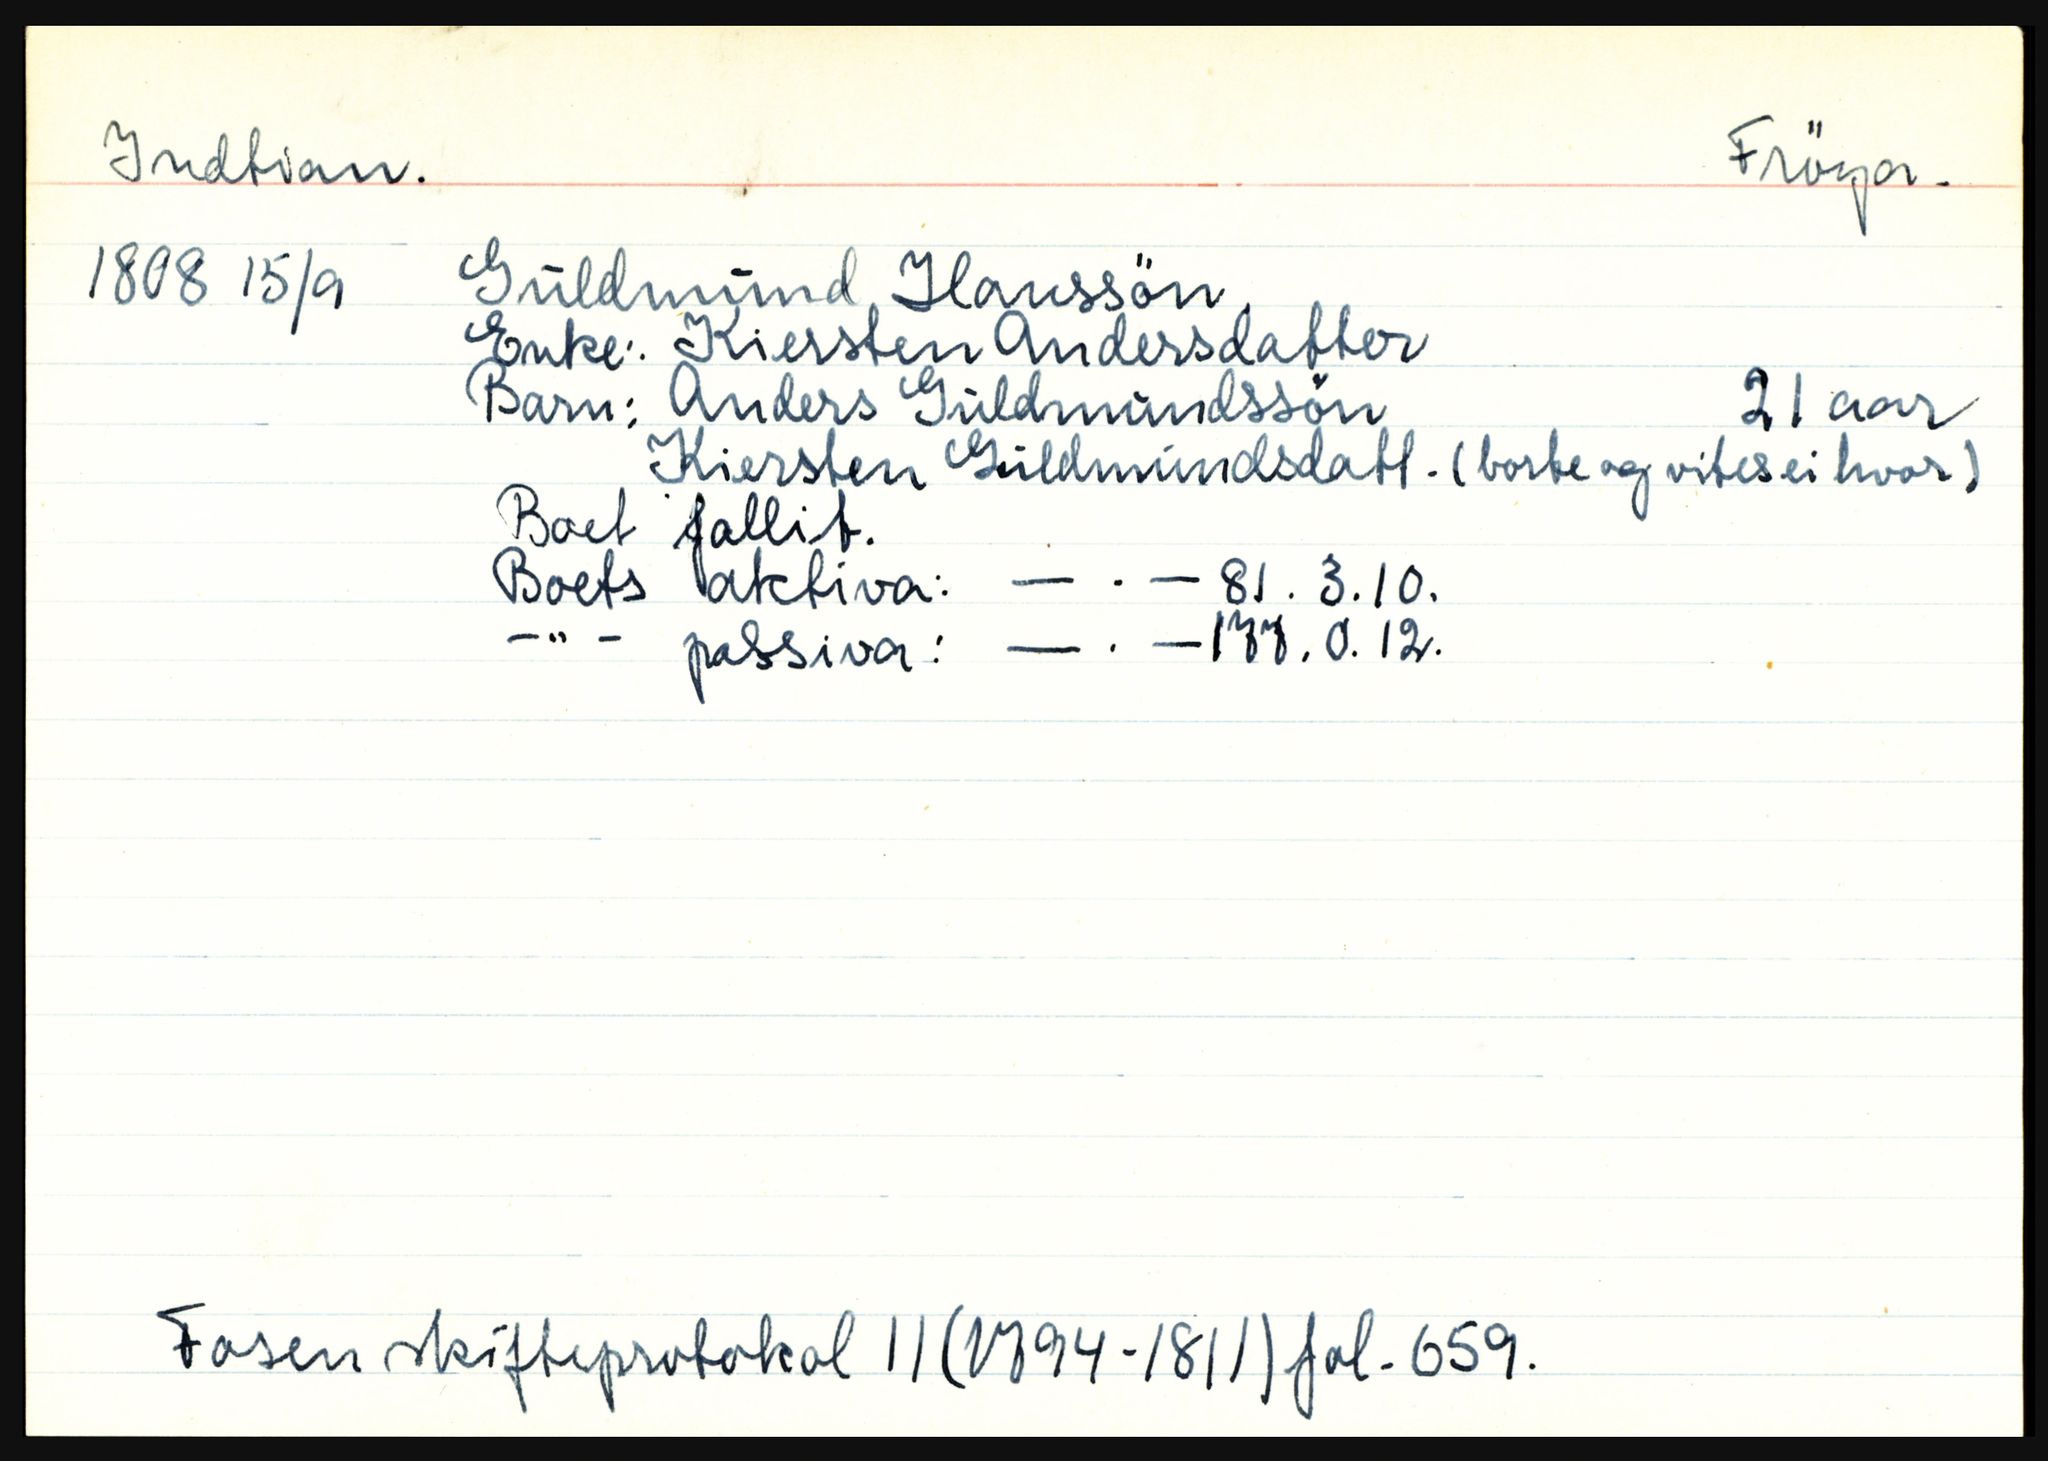 Indtian. Fröya.
1808 15/9 Guldmund Hanssön,
Enke: Kiersten Andersdatter
Barn: Anders Guldmundssön 21 aar
Kiersten Guldmundsdatt. (borte og vites ei hvor)
Boet fallit.
Boets aktiva: — . — 81. 3. 10.
—"— passiva: — . — 177. 0. 12.
Fosen skifteprotokol 11 (1794-1811) fol. 659.